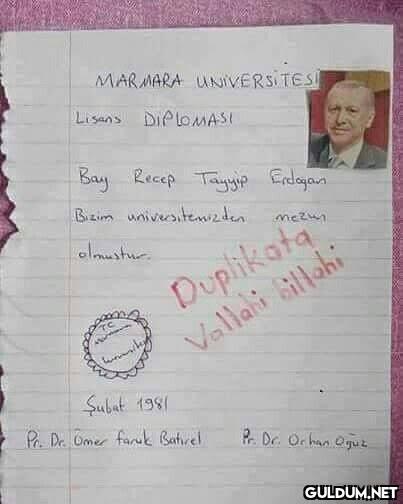 MARMARA UNIVERSITESI
Lisans DIPLOMASI
Bay Recep Tayyip Erdogan
Bizim universitemizden mezun
olmustur.
Duplikata
Vallahi billahi
T.C
Marmara
Universitesi
Şubat 1981
Pr. Dr. Ömer faruk Batırel Pr. Dr. Orhan Oğuz
GULDUM.NET